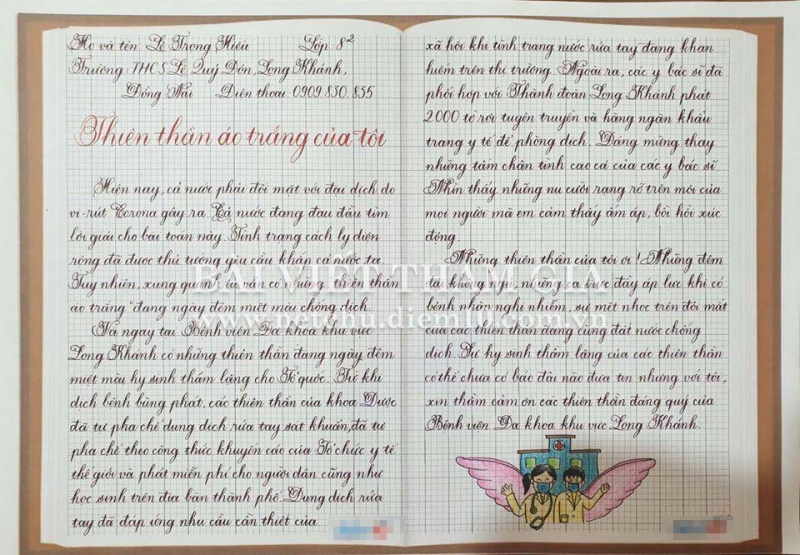 Họ và tên: Lê Trọng Hiếu Lớp 8²
Trường: THCS Lê Quý Đôn, Long Khánh,
Đồng Nai Điện thoại: 0909.850.855
Thiên thần áo trắng của tôi
Hiện nay, cả nước phải đối mặt với đại dịch do
vi-rút Corona gây ra. Cả nước đang đau đầu tìm
lời giải cho bài toán này. Tình trạng cách ly diện
rộng đã được thủ tướng yêu cầu khắp cả nước ta.
Tuy nhiên, xung quanh ta vẫn có những "thiên thần
áo trắng" đang ngày đêm miệt mài chống dịch.
Và ngay tại Bệnh viện Đa khoa khu vực
Long Khánh có những thiên thần đang ngày đêm
miệt mài hy sinh thầm lặng cho Tổ quốc. Từ khi
dịch bệnh bùng phát, các thiên thần của khoa Dược
đã tự pha chế dung dịch rửa tay sát khuẩn, đã tự
pha chế theo công thức khuyến cáo của Tổ chức y tế
thế giới và phát miễn phí cho người dân cũng như
học sinh trên địa bàn thành phố. Dung dịch rửa
tay đã đáp ứng nhu cầu cần thiết của
xã hội khi tình trạng nước rửa tay đang khan
hiếm trên thị trường. Ngoài ra, các y bác sĩ đã
phối hợp với Thành đoàn Long Khánh phát
2000 tờ rơi tuyên truyền và hàng ngàn khẩu
trang y tế để phòng dịch. Đáng mừng thay
những tấm chân tình cao cả của các y bác sĩ.
Nhìn thấy những nụ cười rạng rỡ trên môi của
mọi người mà em cảm thấy ấm áp, bồi hồi xúc
động.
Những thiên thần của tôi ơi! Những đêm
dài không ngủ, những ca trực đầy áp lực khi có
bệnh nhân nghi nhiễm, sự mệt nhọc trên đôi mắt
của các thiên thần đang cùng đất nước chống
dịch. Sự hy sinh thầm lặng của các thiên thần
có thể chưa có báo đài nào đưa tin nhưng với tôi,
xin thầm cảm ơn các thiên thần đáng quý của
Bệnh viện Đa khoa khu vực Long Khánh.
BÀI VIẾT THAM GIA